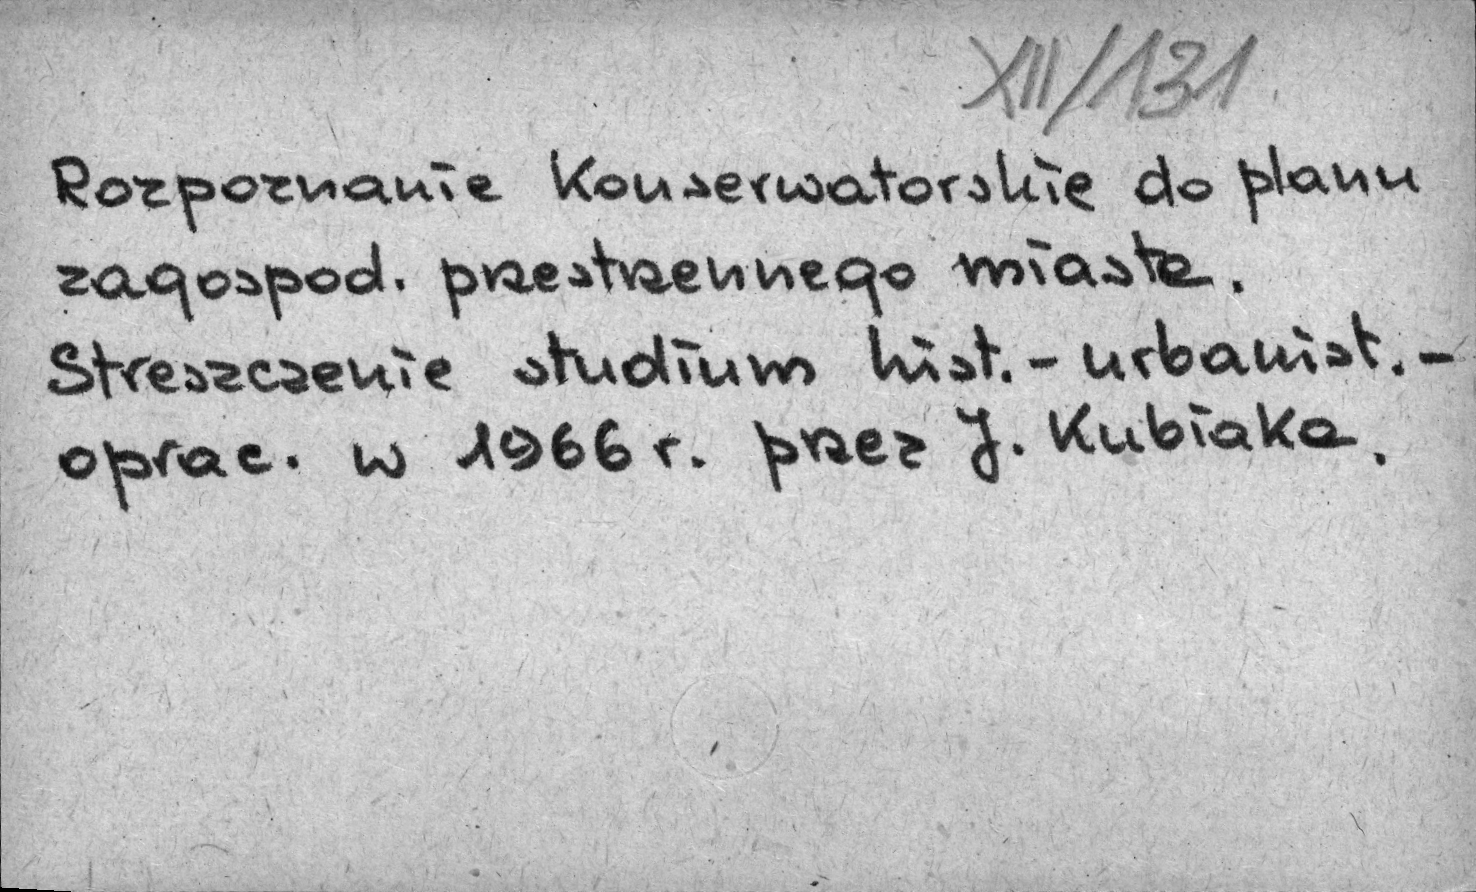 XII/131
Rozpoznanie Konserwatorskie do planu
zagospod. przestrzennego miasta.
Streszczenie studium hist.-urbanist.-
oprac. w 1966 r. przez J. Kubiaka.